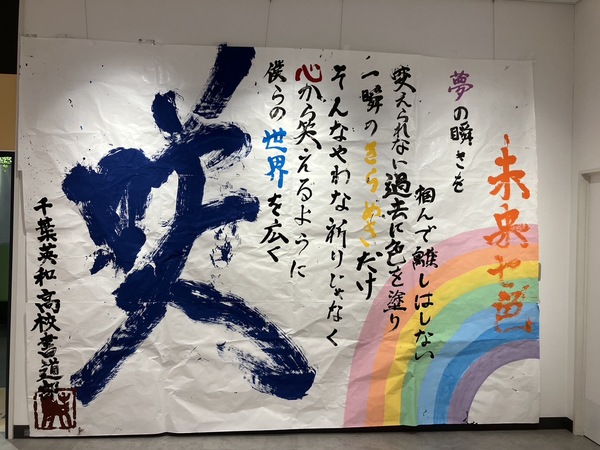 未来七色
夢の瞬きを
掴んで離しはしない
変えられない過去に色を塗り
一瞬のきらめきだけ
そんなやわな祈りじゃなく
心から笑えるように
僕らの世界を広く
咲
千葉英和高校書道部